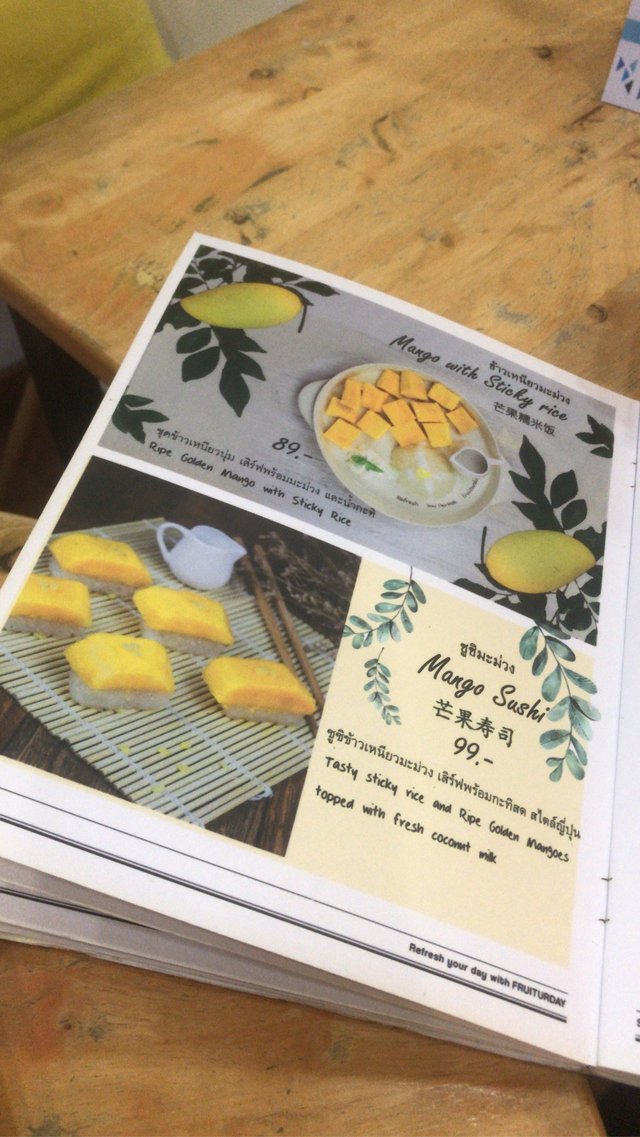 ข้าวเหนียวมะม่วง
Mango with Sticky rice
芒果糯米饭
89.-
ชุดข้าวเหนียวนุ่ม เสิร์ฟพร้อมมะม่วง และน้ำกะทิ
Ripe Golden Mango with Sticky Rice
ซูชิมะม่วง
Mango Sushi
芒果寿司
99.-
ซูชิข้าวเหนียวมะม่วง เสิร์ฟพร้อมกะทิสด สไตล์ญี่ปุ่น
Tasty sticky rice and Ripe Golden Mangoes
topped with fresh coconut milk
Refresh your day with FRUITURDAY